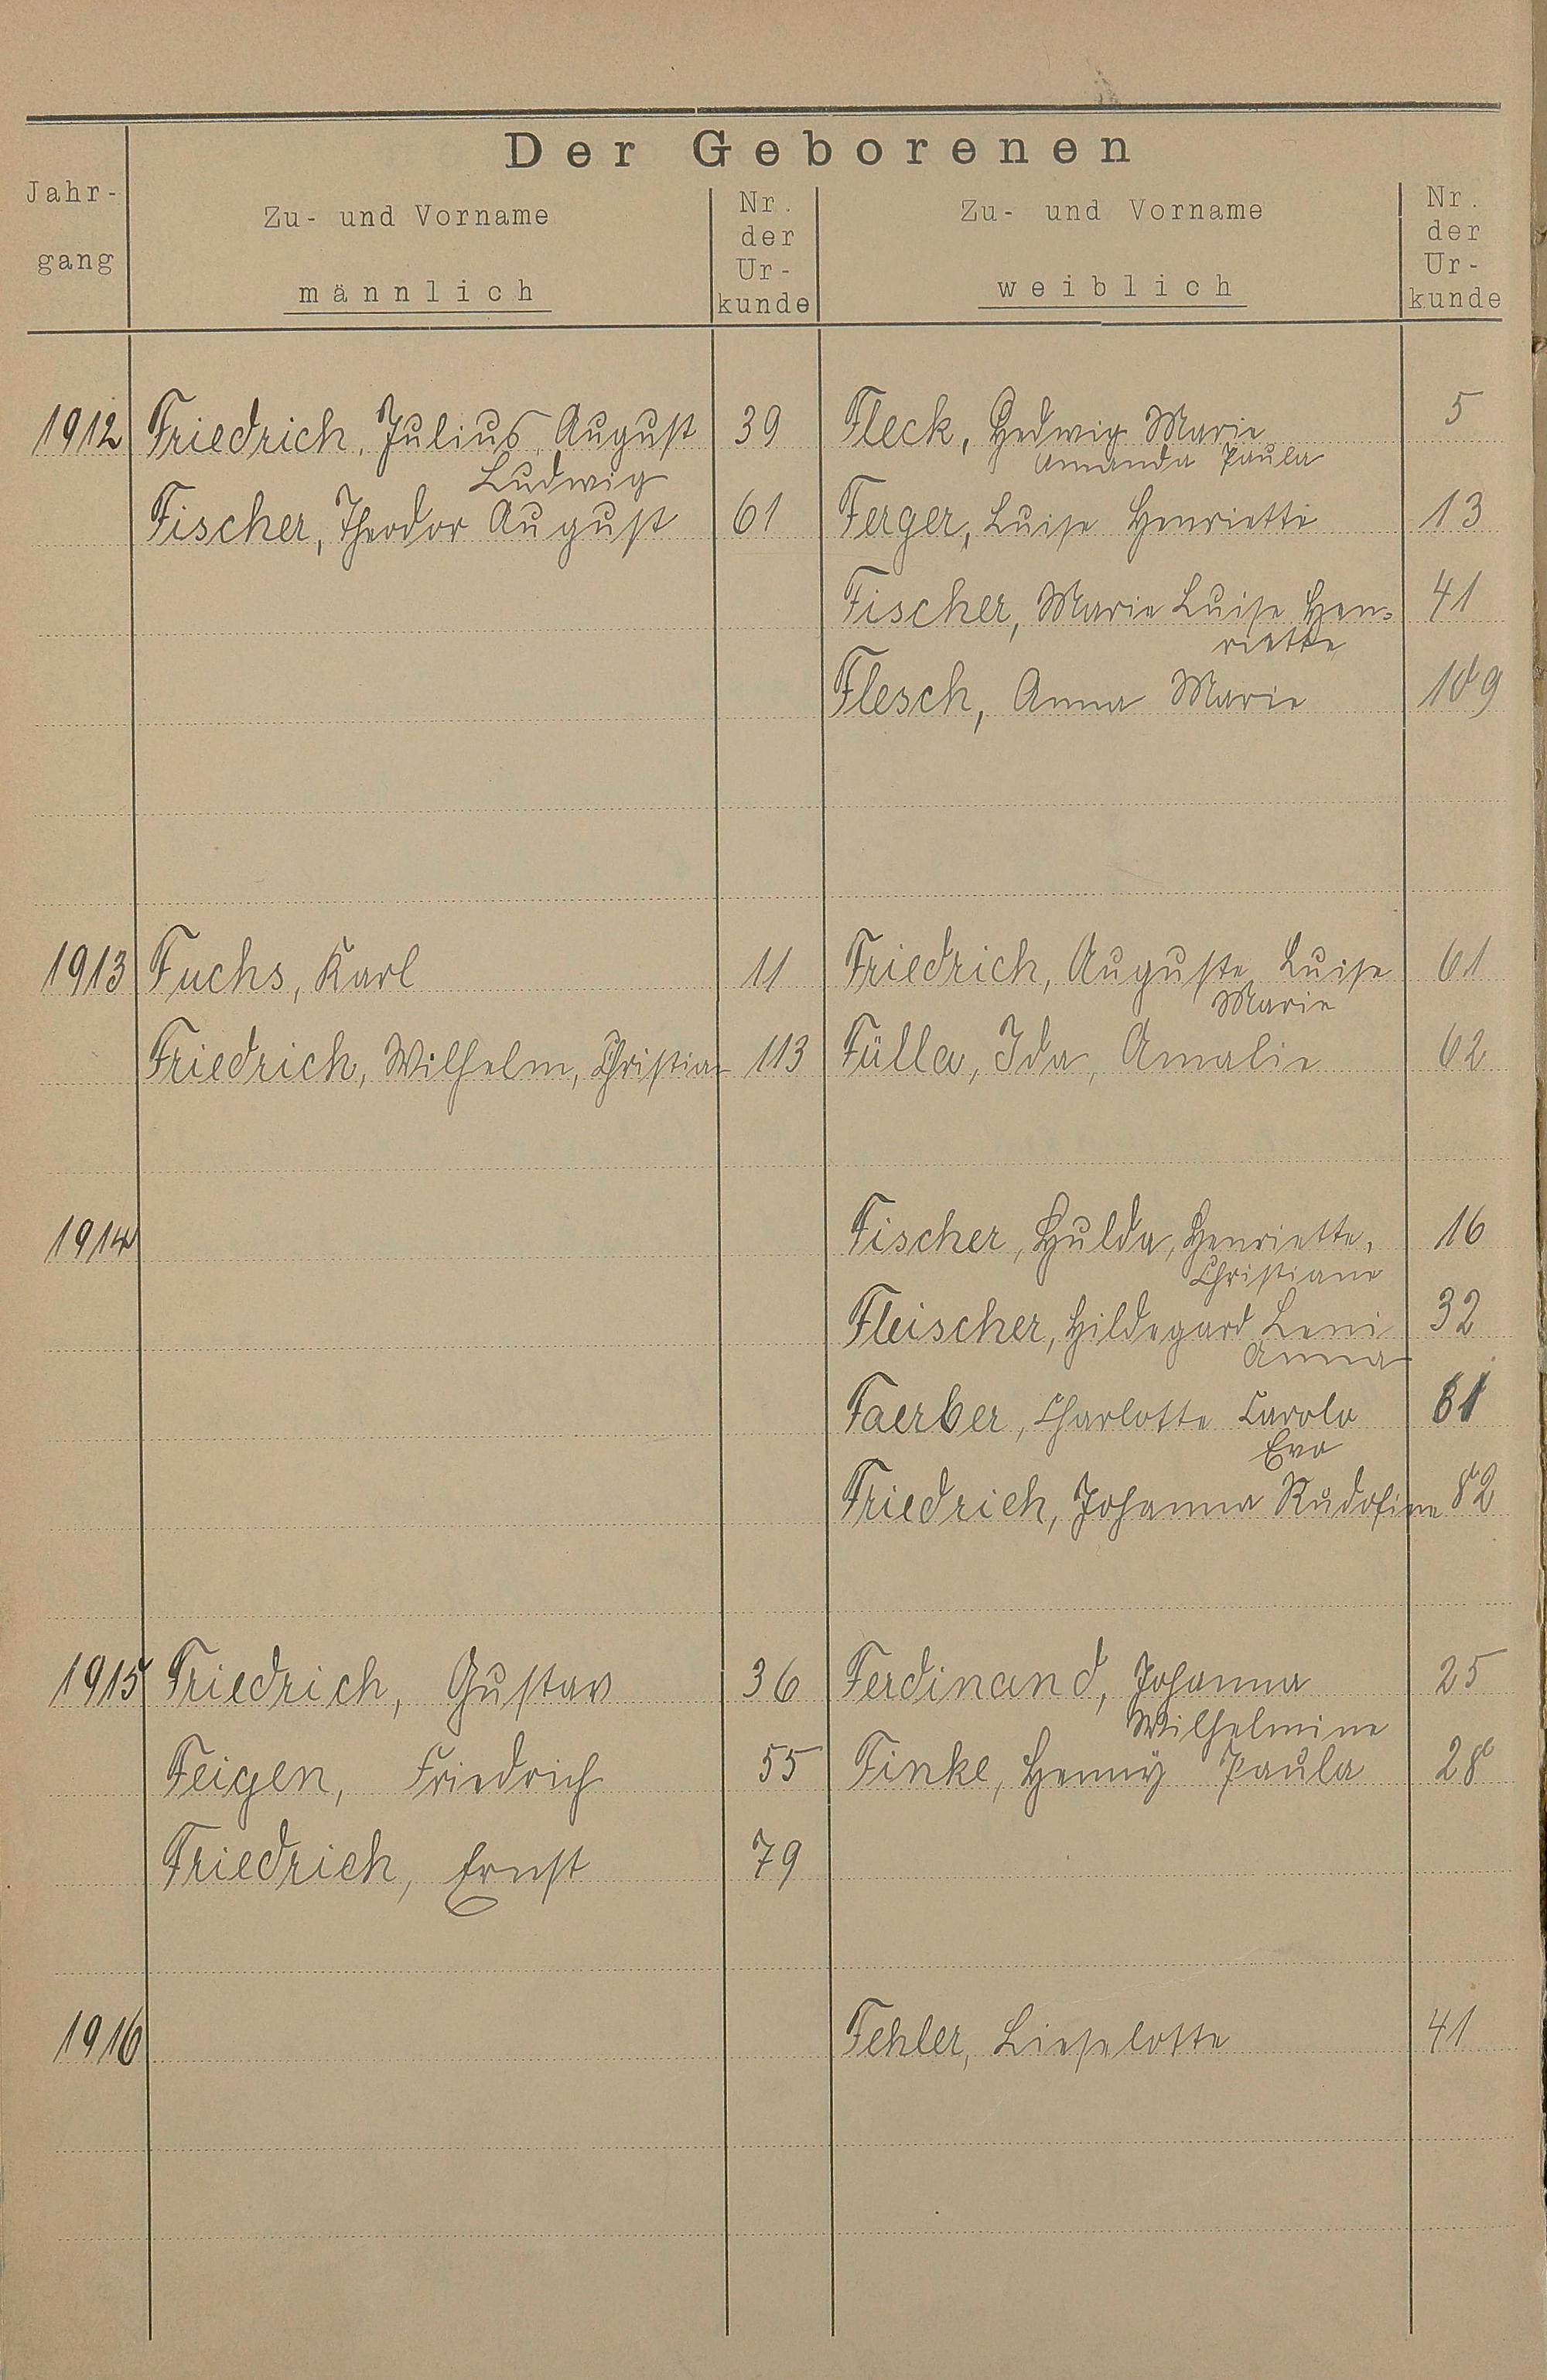 Der Geborenen
Jahr-
gang
Zu- und Vorname
männlich
Nr.
der
Ur-
kunde
Zu- und Vorname
weiblich
Nr.
der
Ur-
kunde
1912 Friedrich, Julius August 39 Fleck, Hedwig Marie 5
Ludwig Amanda Paula
Fischer, Theodor August 61 Ferger, Luise Henriette 13
Fischer, Marie Luise Hen= 41
riette
Flesch, Anna Marie 109
1913 Fuchs, Karl 11 Friedrich, Auguste Luise 61
Marie
Friedrich, Wilhelm, Christian 113 Fülla, Ida, Amalie 62
1914 Fischer, Hulda, Henriette, 16
Christiane
Fleischer, Hildegard Leni 32
Anna
Faerber, Charlotte Carola 61
Eva
Friedrich, Johanna Rudofine 82
1915 Friedrich, Gustav 36 Ferdinand, Johanna 25
Wilhelmine
Feigen, Friedrich 55 Finke, Henny Paula 28
Friedrich, Ernst 79
1916 Fehler, Lieselotte 41